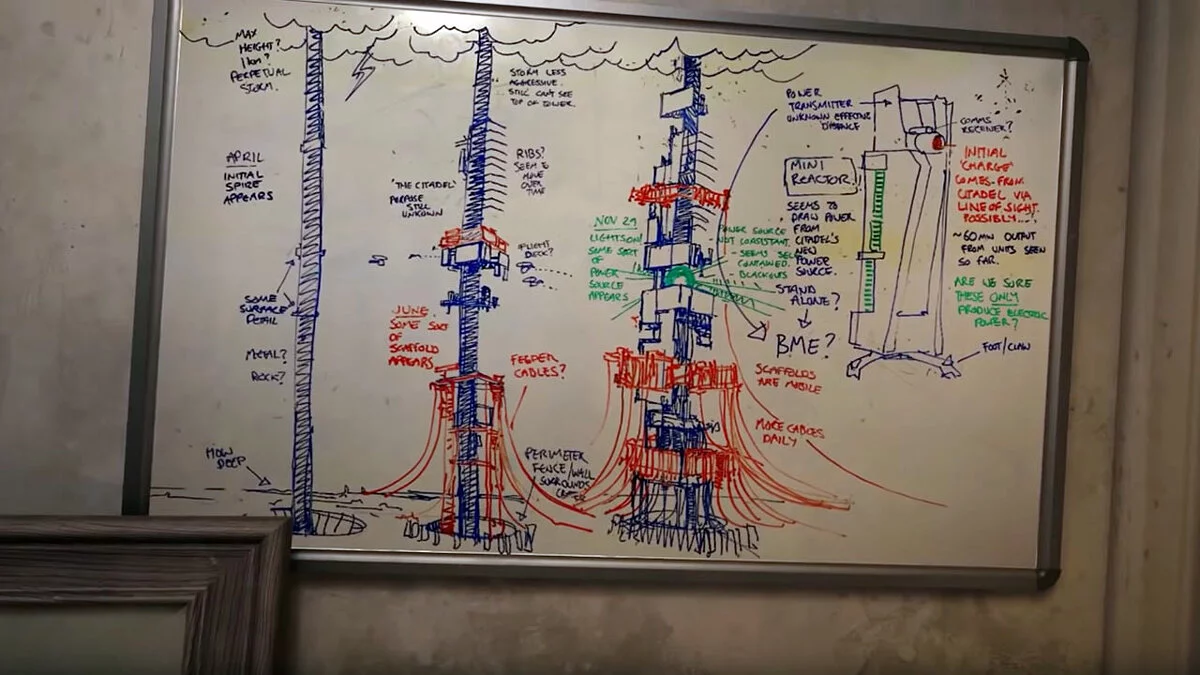 MAX
HEIGHT?
1km?
PERPETUAL
STORM.
APRIL
INITIAL
SPIRE
APPEARS
SOME
SURFACE
DETAIL
METAL?
ROCK?
HOW
DEEP
STORM LESS
AGGRESSIVE.
STILL CAN'T SEE
TOP OF TOWER.
RIBS?
SEEM TO
MOVE
OVER
TIME
"THE CITADEL"
PURPOSE
STILL
UNKNOWN
FLIGHT
DECK?
JUNE
SOME SORT
OF
SCAFFOLD
APPEARS
FEEDER
CABLES?
PERIMETER
FENCE/WALL
SURROUNDS
NOV 29
LIGHTSON!
SOME SORT
OF
POWER
SOURCE
APPEARS
POWER SOURCE
NOT CONSISTANT.
- SEEMS SELF
CONTAINED.
- BLACKOUTS
SCAFFOLDS
ARE MOBILE
MORE CABLES
DAILY
POWER
TRANSMITTER
UNKNOWN EFFECTIVE
DISTANCE
MINI
REACTOR
SEEMS TO
DRAW POWER
FROM
CITADEL'S
NEW
POWER
SOURCE.
STAND
ALONE?
BME?
COMMS
RECEIVER?
INITIAL
'CHARGE'
COMES FROM
CITADEL VIA
LINE OF SIGHT.
POSSIBLY...?
~60MW OUTPUT
FROM UNITS SEEN
SO FAR.
ARE WE SURE
THESE ONLY
PRODUCE ELECTRIC
POWER?
FOOT/CLAW